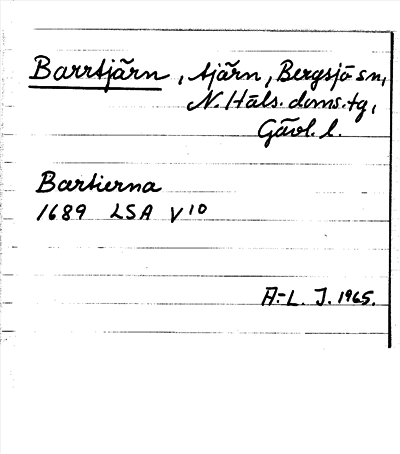 Barrtjärn, tjärn, Bergsjö sn,
N. Häls. doms.tg,
Gävl. l.
Bartierna
1689 LSA V10
A.-L. J. 1965.